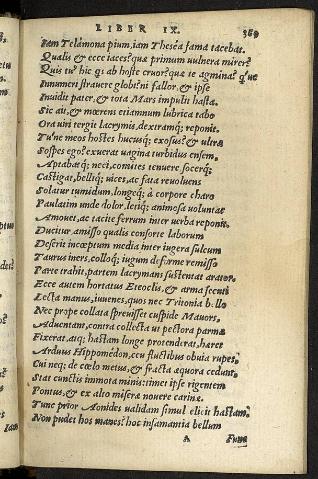 LIBER IX. 369
Iam Telamona pium, iam Thesea fama tacebat.
Qualis & ecce iaces? qua primum uulnera mirer?
Quis tu? hic qs ab hoste cruor? qua te agmina? q́ue
Innumeri strauere globi? ni fallor, & ipse
Inuidit pater, & tota Mars impulit hasta.
Sic ait, & mœrens etiamnum lubrica tabo
Ora uiri tergit lacrymis, dextramq; reponit.
Tu'ne meos hostes hucusq; exosus? & ultra
Sospes ego? exuerat uagina turbidus ensem.
Aptabatq; neci, comites tenuere socerq́;
Castigat, belliq; uices, ac fata reuoluens
Solatur tumidum, longeq; à corpore charo
Paulatim unde dolor, letiq; animosa uoluntas
Amouet, ac tacite ferrum inter uerba reponit.
Ducitur amisso qualis consorte laborum
Deserit incœptum media inter iugera sulcum
Taurus iners, colloq; iugum deforme remisso
Parte trahit, partem lacrymans sustentat arator.
Ecce autem hortatus Eteoclis, & arma secuti
Lecta manus, iuuenes, quos nec Tritonia bello
Nec prope collata spreuisset cuspide Mauors.
Aduentam, contra collecta ut pectora parma
Fixerat, atq; hastam longe protenderat, hæret
Arduus Hippomedon, ceu fluctibus obuia rupes,
Cui neq; de cœlo metus, & fracta æquora cedunt,
Stat cunctis immota minis: timet ipse rigentem
Pontus, & ex alto miseræ nouere carinæ.
Tunc prior Aonides ualidam simul elicit hastam.
Non pudet hos manes? hoc infamantia bellum
A Fune